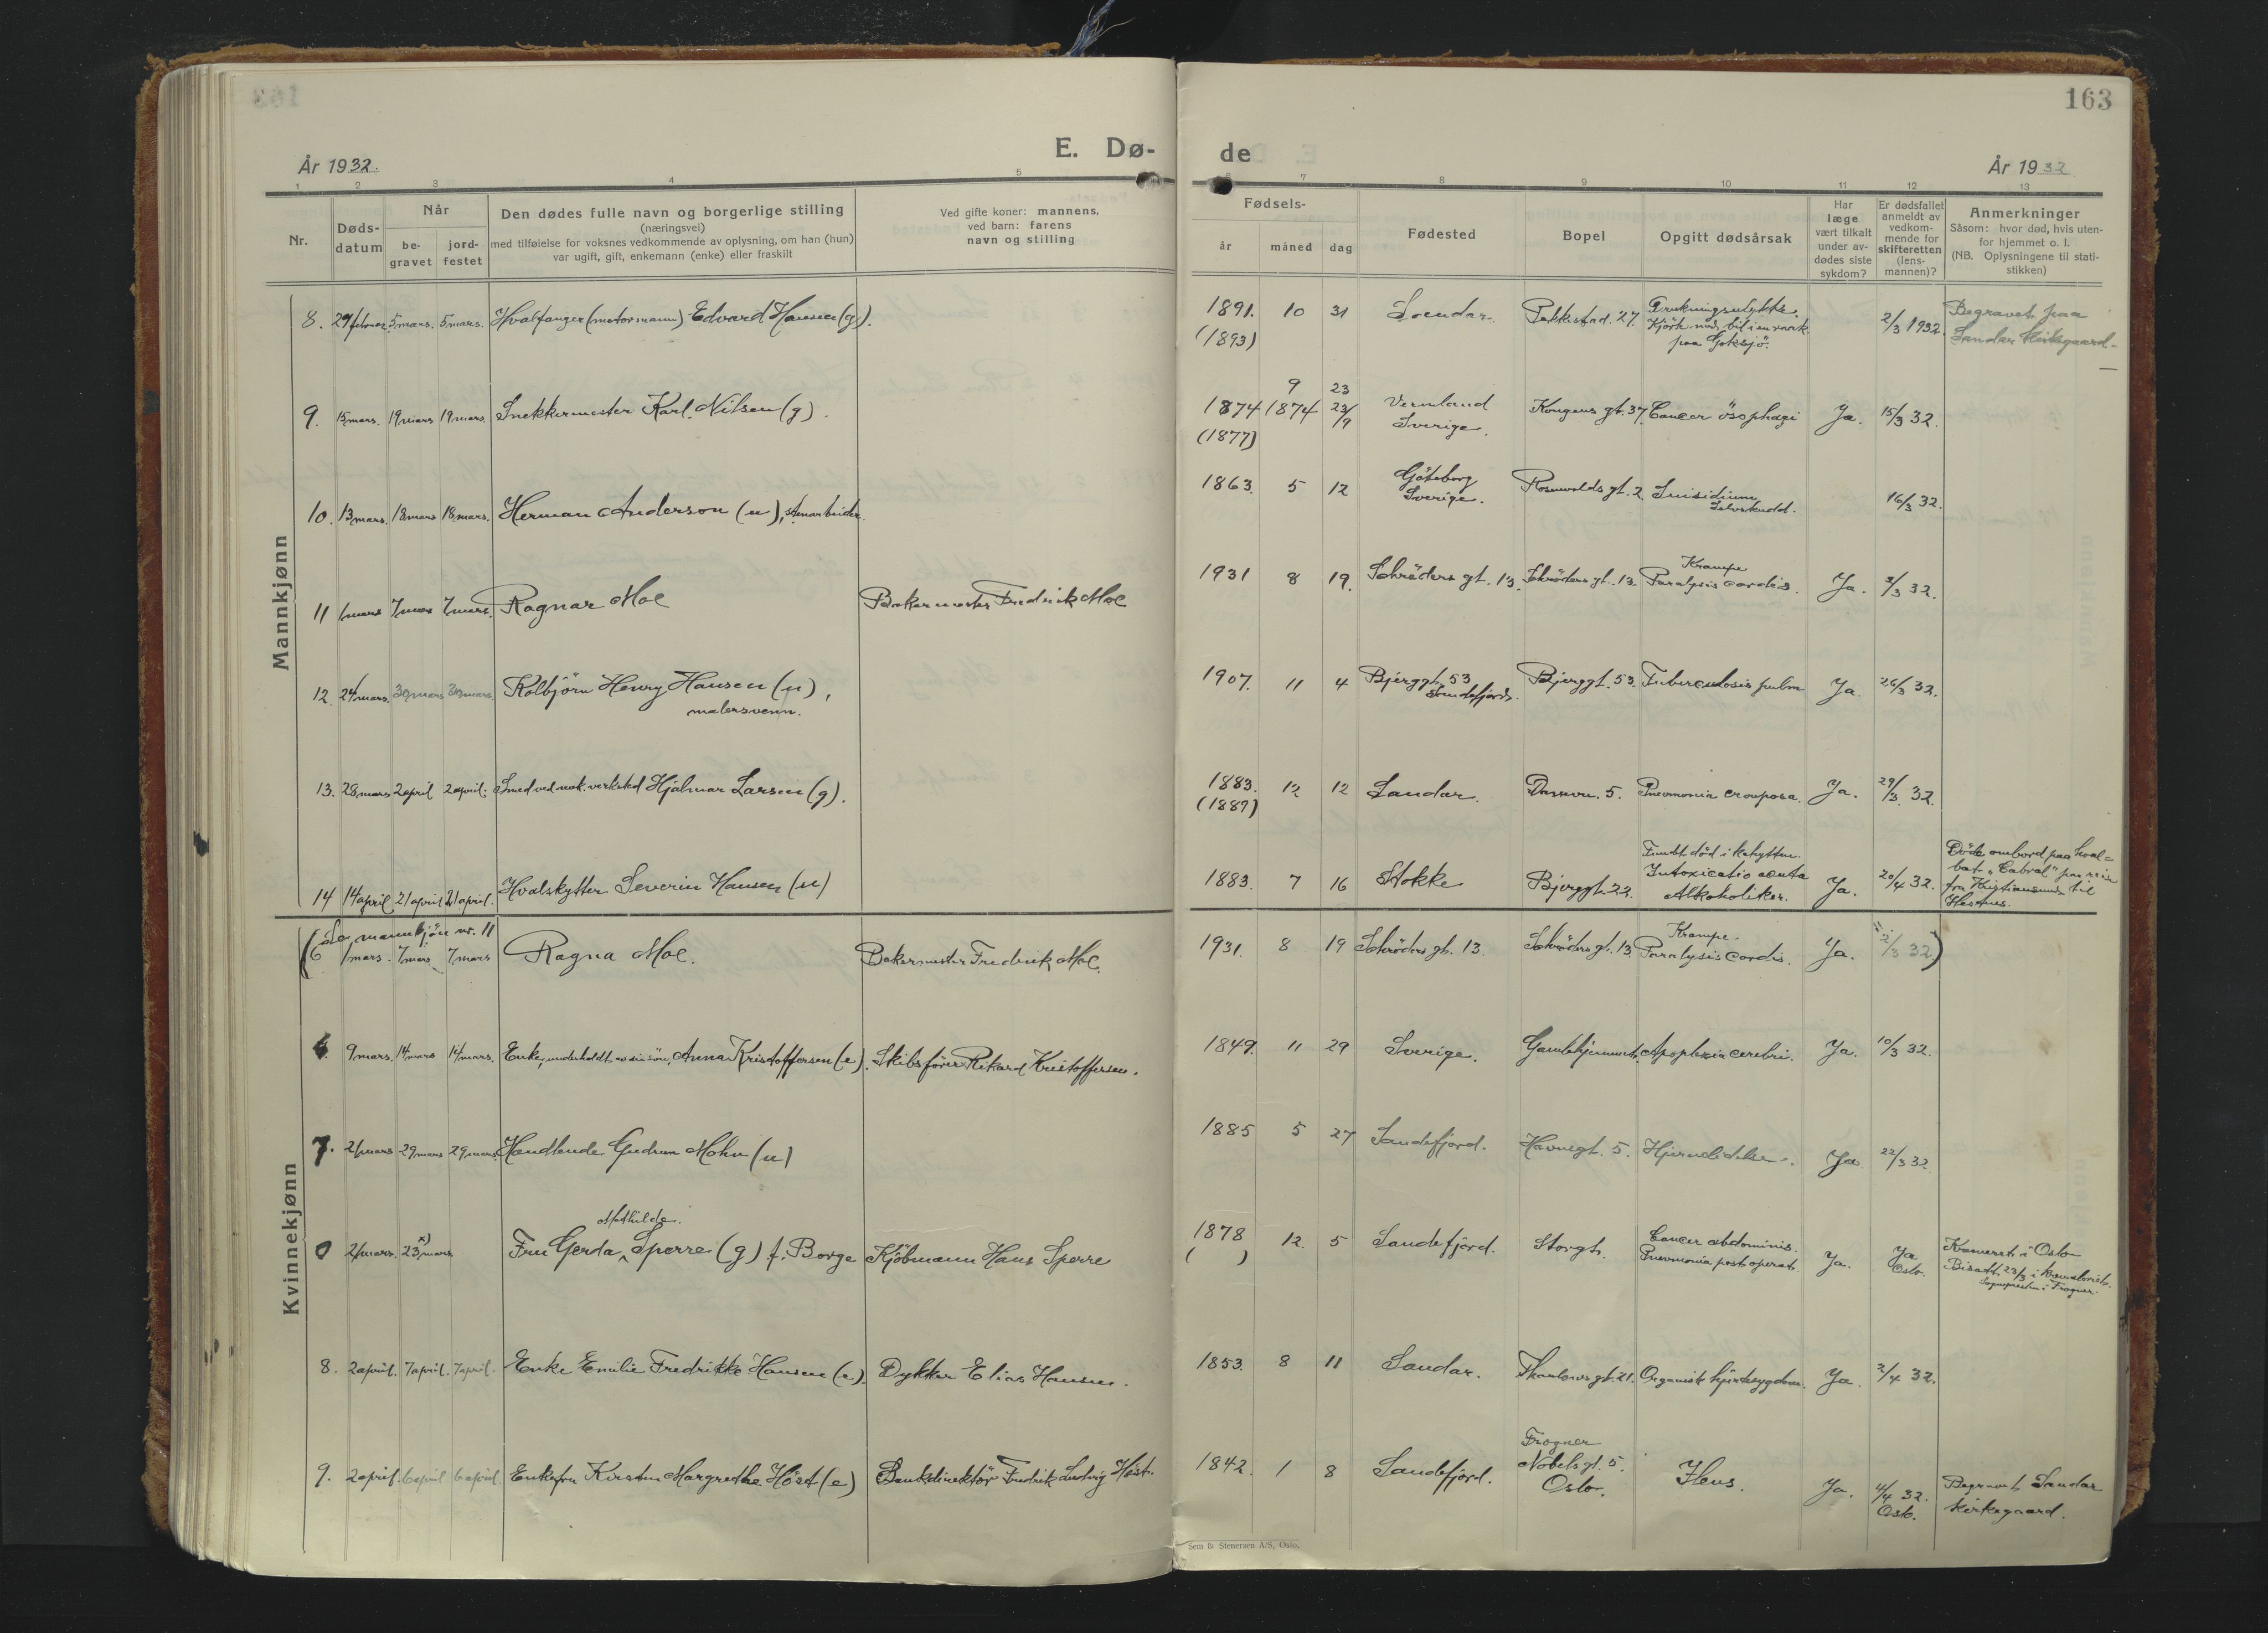 163
E. Dø-
de
År 1932.
År 1932
1 2 3 4 5
6 7 8 9 10 11 12 13
Nr.
Døds-
datum
Når
be-
gravet
jord-
festet
Den dødes fulle navn og borgerlige stilling
(næringsvei)
med tilføielse for voksnes vedkommende av oplysning, om han (hun)
var ugift, gift, enkemann (enke) eller fraskilt
Ved gifte koner: mannens,
ved barn: farens
navn og stilling
Fødsels-
år måned dag
Fødested
Bopel
Opgitt dødsårsak
Har
læge
vært tilkalt
under av-
dødes siste
sykdom?
Er dødsfallet
anmeldt av
vedkom-
mende for
skifteretten
(lens-
mannen)?
Anmerkninger
Såsom: hvor død, hvis uten-
for hjemmet o. l.
(NB. Oplysningene til stati-
stikken)
Mannkjønn
8. 29 februar 5 mars. 5 mars. Hvalfanger (motormann) Edvard Hansen (g). 1891. 10 31 Sandar. Pukkestad. 27. Drukningsulykke.
(1893) Kjørte ned, bil i en raak
paa Goksjø.
2/3 1932. Begravet paa
Sandar Kirkegaard.
9. 15 mars. 19 mars 19 mars. Snekkermester Karl Nilsen (g). 1874 1874 9 23 23/9 Vermland
(1877) Sverige. Kongens gt. 37. Cancer ösophagi Ja. 15/3 32.
10. 13 mars. 18 mars 18 mars. Herman Anderson (u), stenarbeider. 1863. 5 12 Göteborg
Sverige. Rosenvolds gt. 2. Suisidium
Selvskudd. 16/3 32.
11 1 mars 7 mars 7 mars. Ragnar Moe Bakermester Fredrik Moe 1931 8 19. Schrøders gt. 13. Schrøders gt. 13. Krampe
Paralysis cordis. Ja. 2/3 32.
12. 24 mars. 30 mars 30 mars. Kolbjörn Henry Hansen (u),
malersvenn. 1907. 11 4 Bjerggt. 53
Sandefjord. Bjerggt. 53. Tuberculosis pulm Ja. 26/3 32.
13. 28 mars 2 april 2 april. Smed ved mek. verksted Hjalmar Larsen (g). 1883. 12 12 Sandar.
(1889) 5. Pneumonia crouposa. Ja. 29/3 32.
14 14 april. 21 april 21 april. Hvalskytter Severin Hansen (u) 1883. 7 16 Stokke Bjerggt. 22. Fundet død i kahytten.
Intoxicatio acuta
Alkoholiker. Ja. 20/4 32. Døde ombord paa hval-
bat "Cabral" paa reise
fra Kristiansund til
Hestnes.
Kvinnekjønn
(Se mannkjøn nr. 11
6 1 mars. 7 mars 7 mars Ragna Moe. Bakermester Fredrik Moe. 1931. 8 19 Schrøders gt. 13. Schrøders gt. 13. Krampe.
Paralysis Cordis. Ja. 2/3 32.)
6. 9 mars. 14 mars 14 mars. Enke, underholdt av sin søn, Anna Kristoffersen (e). Skibsfører Rikard Kristoffersen. 1849. 11 29 Sverige. Gamlehjemmet. Apoplexia cerebri. Ja. 10/3 32.
7. 21 mars 29 mars 29 mars. Handlende Gudrun Mohn (u) 1885 5 27 Sandefjord. Havnegt. 5. Hjernelidelse. Ja 22/3 32.
0 21 mars. 23 x) mars Fru Gerda Mathilde. Sperre (g) f. Borge Kjøbmann Hans Sperre 1878 12. 5 Sandefjord. Storgt. Cancer abdominis.
( ) Pneumonia post operat. Ja. Ja
Oslo. Kremeret i Oslo
Bisatt 23/3 i krematoriet.
Sognepresten i Frogner.
8. 2 april. 7 april. 7 april. Enke Emilie Fredrikke Hansen (e). Dykker Elias Hansen. 1853. 8 11 Sandar. Thaulows gt. 21. Organisk hjertesygdom. Ja. 2/4 32.
9. 2 april. 6 april 6 april Enkefru Kirsten Margrethe Höst (e) Bankdirektör Fredrik Ludvig Höst. 1842. 1 8 Sandefjord. Frogner
Nobelsgt. 5.
Oslo. Ileus. Ja. 4/4 32.
Oslo. Begravet Sandar
kirkegaard.
Sem & Stenersen A/S, Oslo.